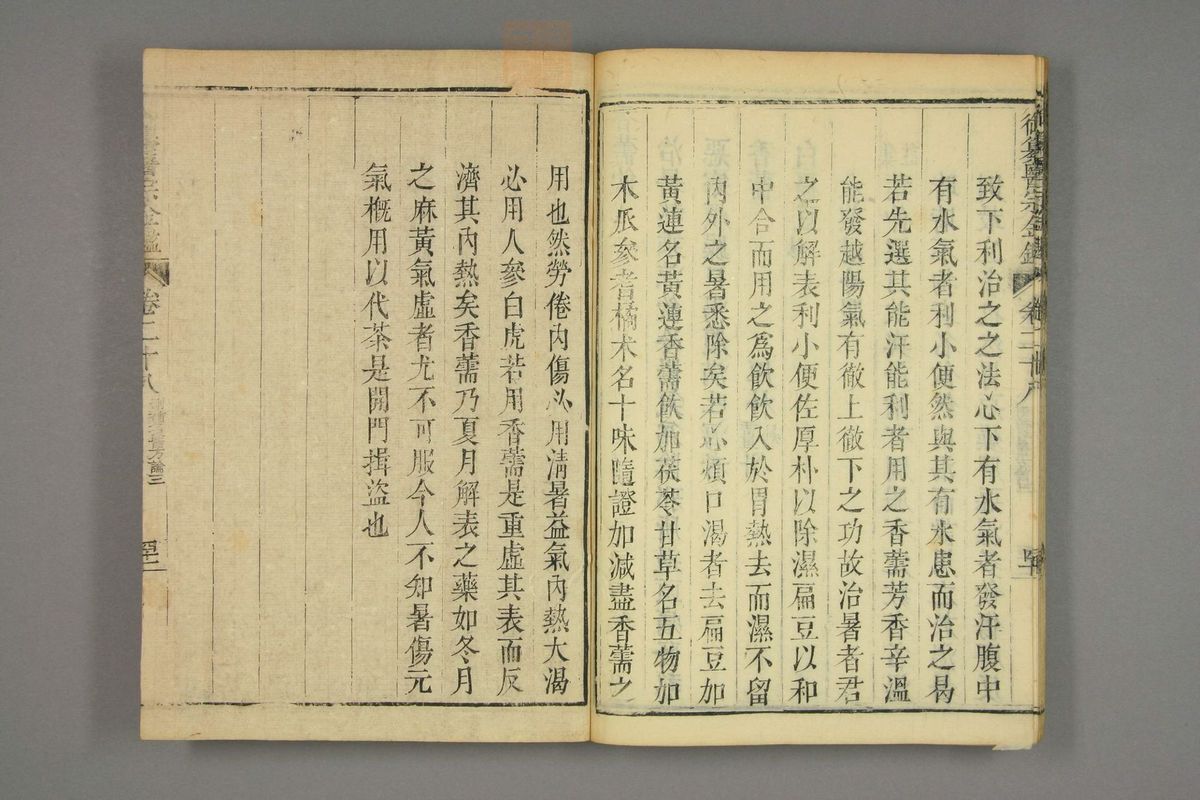 御纂醫宗金鑑 卷二十八
致下利治之之法心下有水氣者發汗腹中
有水氣者利小便然與其有水患而治之曷
若先選其能汗能利者用之香薷芳香辛溫
能發越陽氣有徹上徹下之功故治暑者君
之以解表利小便佐厚朴以除濕扁豆以和
中合而用之為飲飲入於胃熱去而濕不留
內外之暑悉除矣若心煩口渴者去扁豆加
黃連名黃連香薷飲加茯苓甘草名五物加
木瓜參耆橘朮名十味隨證加減盡香薷之
用也然勞倦內傷必用清暑益氣內熱大渴
必用人參白虎若用香薷是重虛其表而反
濟其內熱矣香薷乃夏月解表之藥如冬月
之麻黃氣虛者尤不可服今人不知暑傷元
氣概用以代茶是開門揖盜也
卷二十八